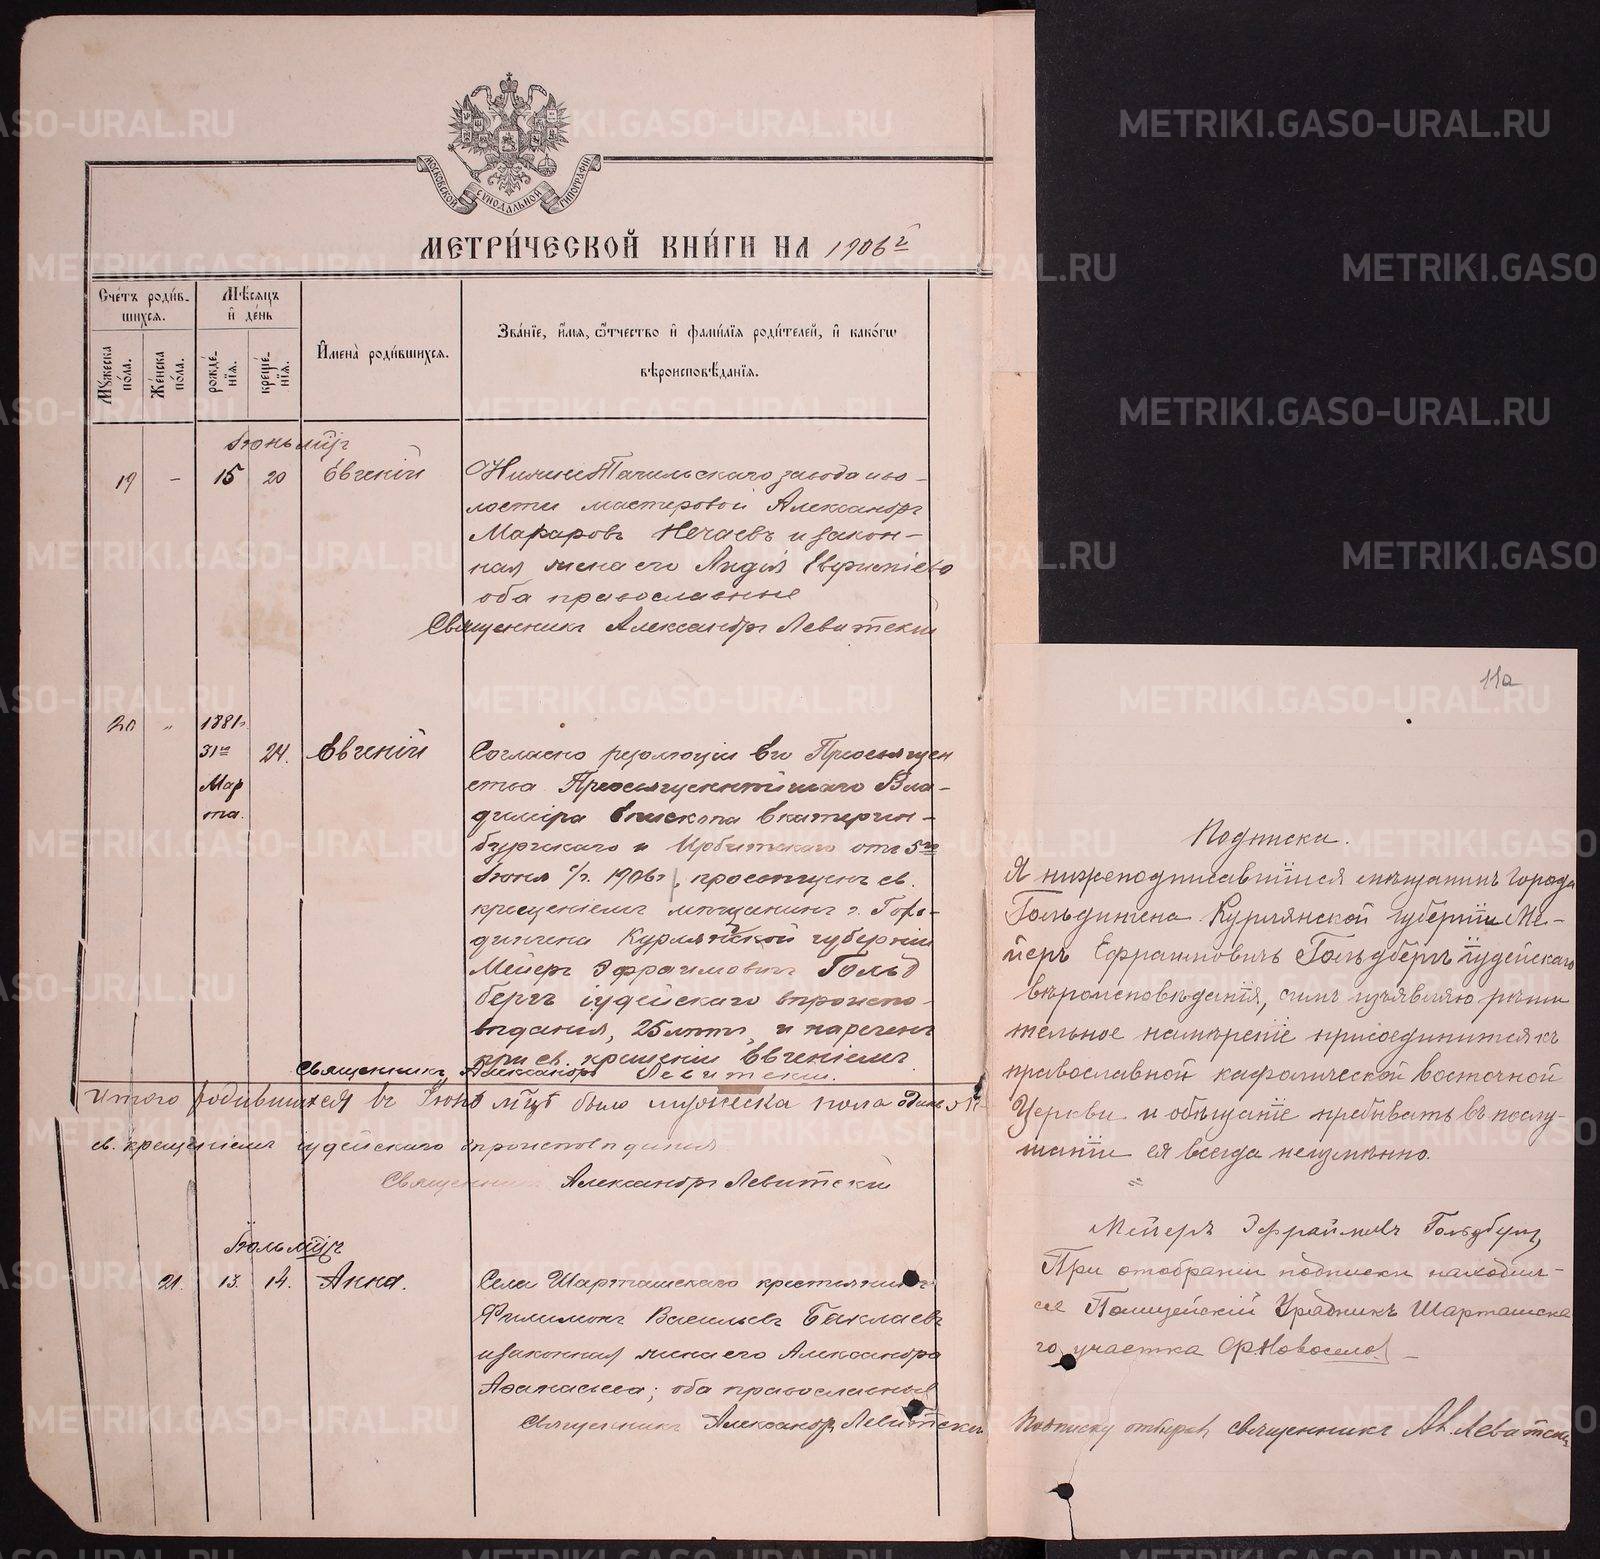 МОСКОВСКОЙ СѴНОДАЛЬНОЙ ТИПОГРАФІИ
МЕТРИ́ЧЕСКОЙ КНИ́ГИ НА 1906 й
Сче́тъ роди́вшихся.
Му́жеска по́ла.
Же́нска по́ла.
Мѣ́сяцъ и҆ де́нь
рожде́нїя.
креще́нїя.
И҆мена̀ роди́вшихся.
Зва́нїе, и҆́мя, ѻ҆́тчество и҆ фами́лїя роди́телей, и҆ како́гѡ
вѣроисповѣ́данїя.
Іюнь мѣсяцъ
19 - 15 20 Евгеній
Нижне Тагильскаго завода и во-
лости мастеровой Александръ
Макаровъ Нечаевъ и закон-
ная жена его
оба православные
Священникъ Александръ Левитскій
20 " 1881 г.
31 го Мар
та. 24. Евгеній
Согласно резолюціи Его Преосвящен
ства Преосвященнѣйшаго Вла-
диміра Епископа Екатерин-
бургскаго и Ирбитскаго отъ 5 го
Іюня с/г. 1906 г, просвѣщенъ св.
крещеніемъ мѣщанинъ г. Голь-
дингена Курлянской губерніи
Мейеръ Эфраимовичъ Гольд
бергъ іудейскаго вѣроиспо-
вѣданія, 25 лѣтъ, и нареченъ
при св. крещеніи Евгеніемъ
Священникъ Александръ Левитскій.
Итого родившихся въ Іюнѣ мцѣ было мужеска пола одинъ
св. крещеніемъ іудейскаго вѣроисповѣданія
Священникъ Александръ Левитскій
Іюль мѣсяцъ
21. 13. 14. Анна.
Села Шарташскаго крестьянинъ
Филимонъ Васильевъ Баклаевъ
и законная жена его Александра
Афанасьева; оба православные
Священникъ Александръ Левитскій
11а
Подписка.
Я нижеподписавшійся мѣщанинъ города
Гольдингена Курлянской губерніи Ме-
йеръ Ефраимовичъ Гольдбергъ іудейскаго
вѣроисповѣданія, симъ изъявляю рѣши
тельное намѣреніе присоединиться къ
православной кафолической восточной
Церкви и обѣщаніе пребывать въ послу-
шаніи ея всегда неизмѣнно.
Мейеръ Эфраймовъ Гольдбергъ
При отобраніи подписки находил-
ся Полицейскій Урядникъ Шарташска
го участка Новоселов
Подписку отбиралъ священникъ Ал. Левитскій
METRIKI.GASO-URAL.RU